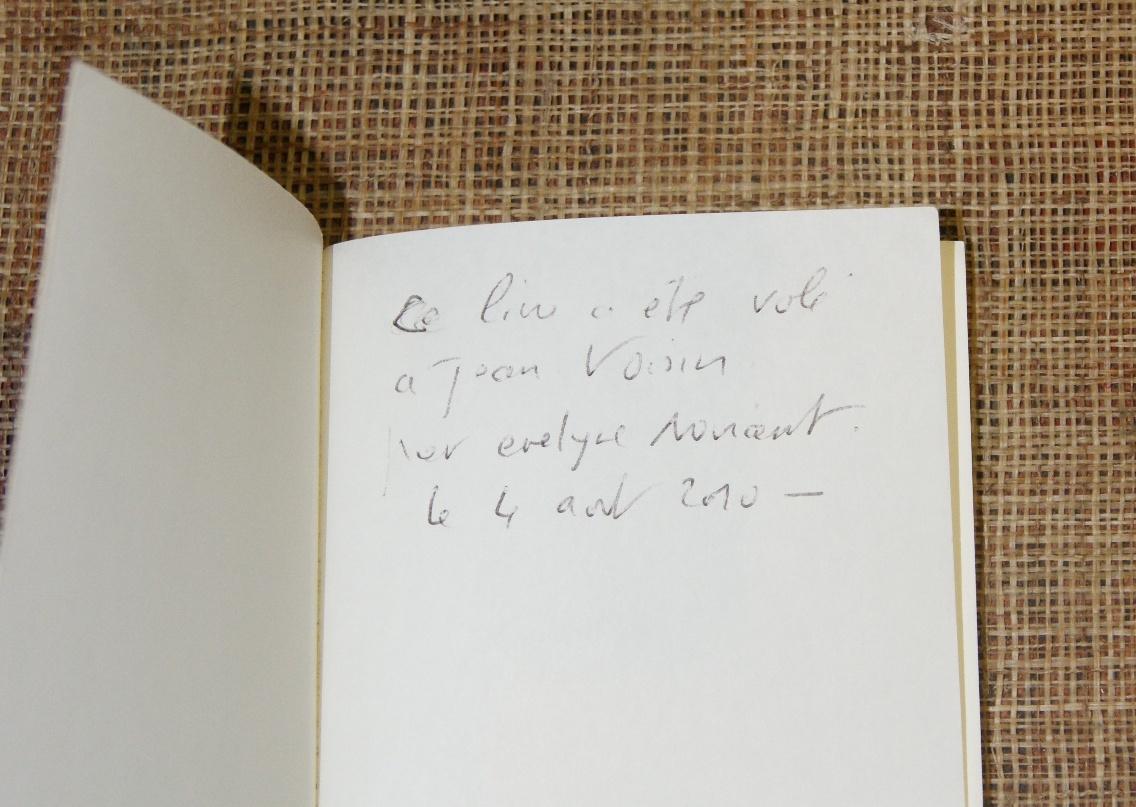 Ce livre a été volé
a Jean Voisin
par evelyne
le 4 aout 2010 —